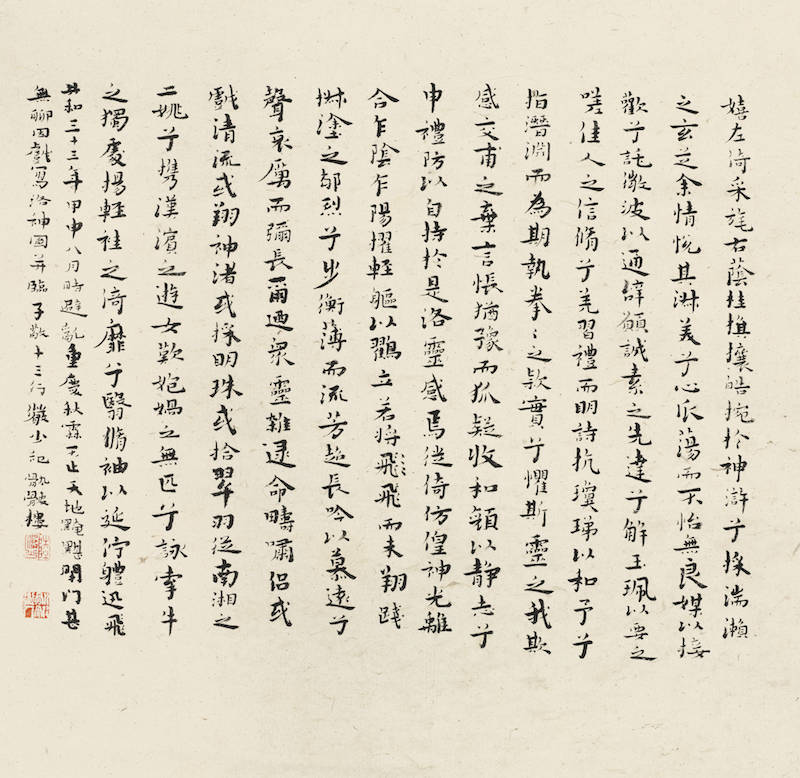 嬉左倚采旄右蔭桂旗攘皓捥於神滸兮採湍瀨
之玄芝余情悅其淋美兮心振蕩而不怡無良媒以接
歡兮託微波以通辭願誠素之先達兮解玉珮以要之
嗟佳人之信脩兮羌習禮而明詩抗瓊珶以和予兮
指潛淵而為期執拳〻之款實兮懼斯靈之我欺
感交甫之棄言悵猶豫而狐疑收和顏以靜志兮
申禮防以自持於是洛靈感焉徙倚仿偟神光離
合乍陰乍陽擢輕軀以鶴立若將飛飛而未翔踐
椒塗之郁烈兮步衡薄而流芳超長吟以慕遠兮
聲哀厲而彌長爾迺眾靈雜遝命疇嘯侶或
戲清流或翔神渚或採明珠或拾翠羽從南湘之
二姚兮攜漢濱之遊女歎匏媧之無匹兮詠牽牛
之獨處揚輕袿之倚靡兮翳脩袖以延佇體迅飛
共和三十三年甲申八月時避亂重慶秋霖不止天地黯黮閉門甚
無聊因戲寫洛神圖并臨子敬十三行儼少記骩骳樓